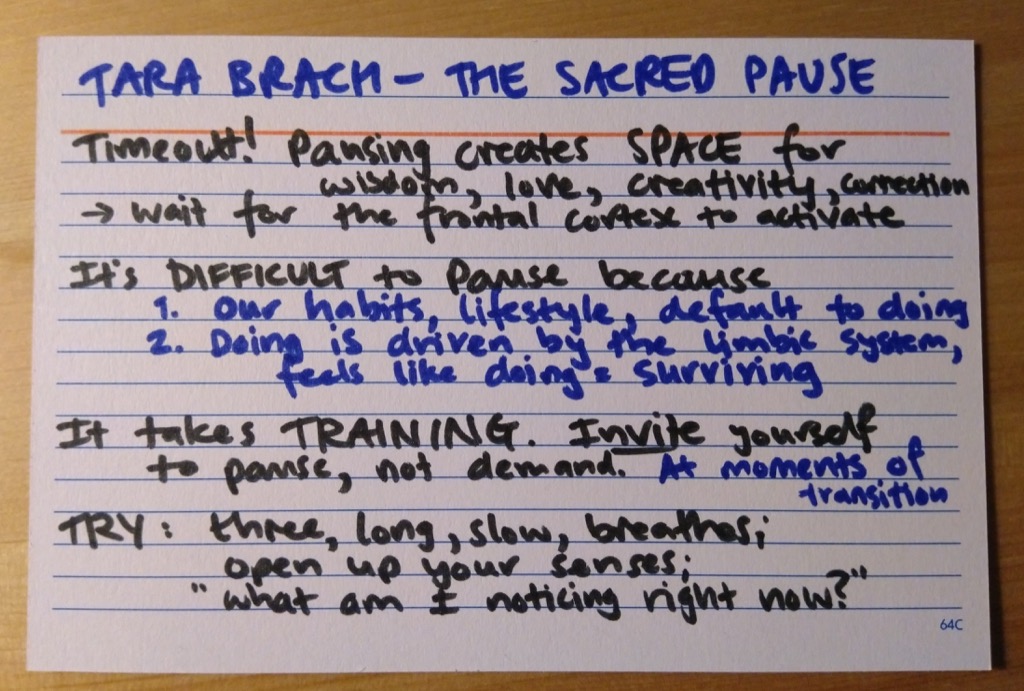 TARA BRACH – THE SACRED PAUSE
Timeout! Pausing creates SPACE for
wisdom, love, creativity, connection
→ wait for the frontal cortex to activate
It's DIFFICULT to pause because
1. Our habits, lifestyle, default to doing
2. Doing is driven by the limbic system,
feels like doing = surviving
It takes TRAINING. Invite yourself
to pause, not demand. At moments of
transition
TRY: three, long, slow, breathes;
open up your senses;
"what am I noticing right now?"
64C